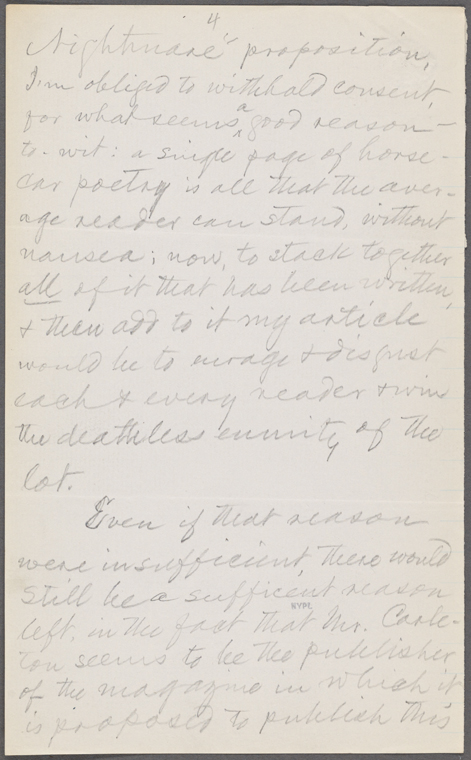 4
Nightmare" proposition,
I'm obliged to withhold consent,
for what seems a good reason —
to-wit: a single page of horse-
car poetry is all that the aver-
age reader can stand, without
nausea; now, to stack together
all of it that has been written,
& then add to it my article
would be to enrage & disgust
each & every reader & win
the deathless enmity of the
lot.
Even if that reason
were insufficient, there would
still be a sufficient reason
left, in the fact that Mr. Carle-
NYPL
ton seems to be the publisher
of the magazine in which it
is proposed to publish this